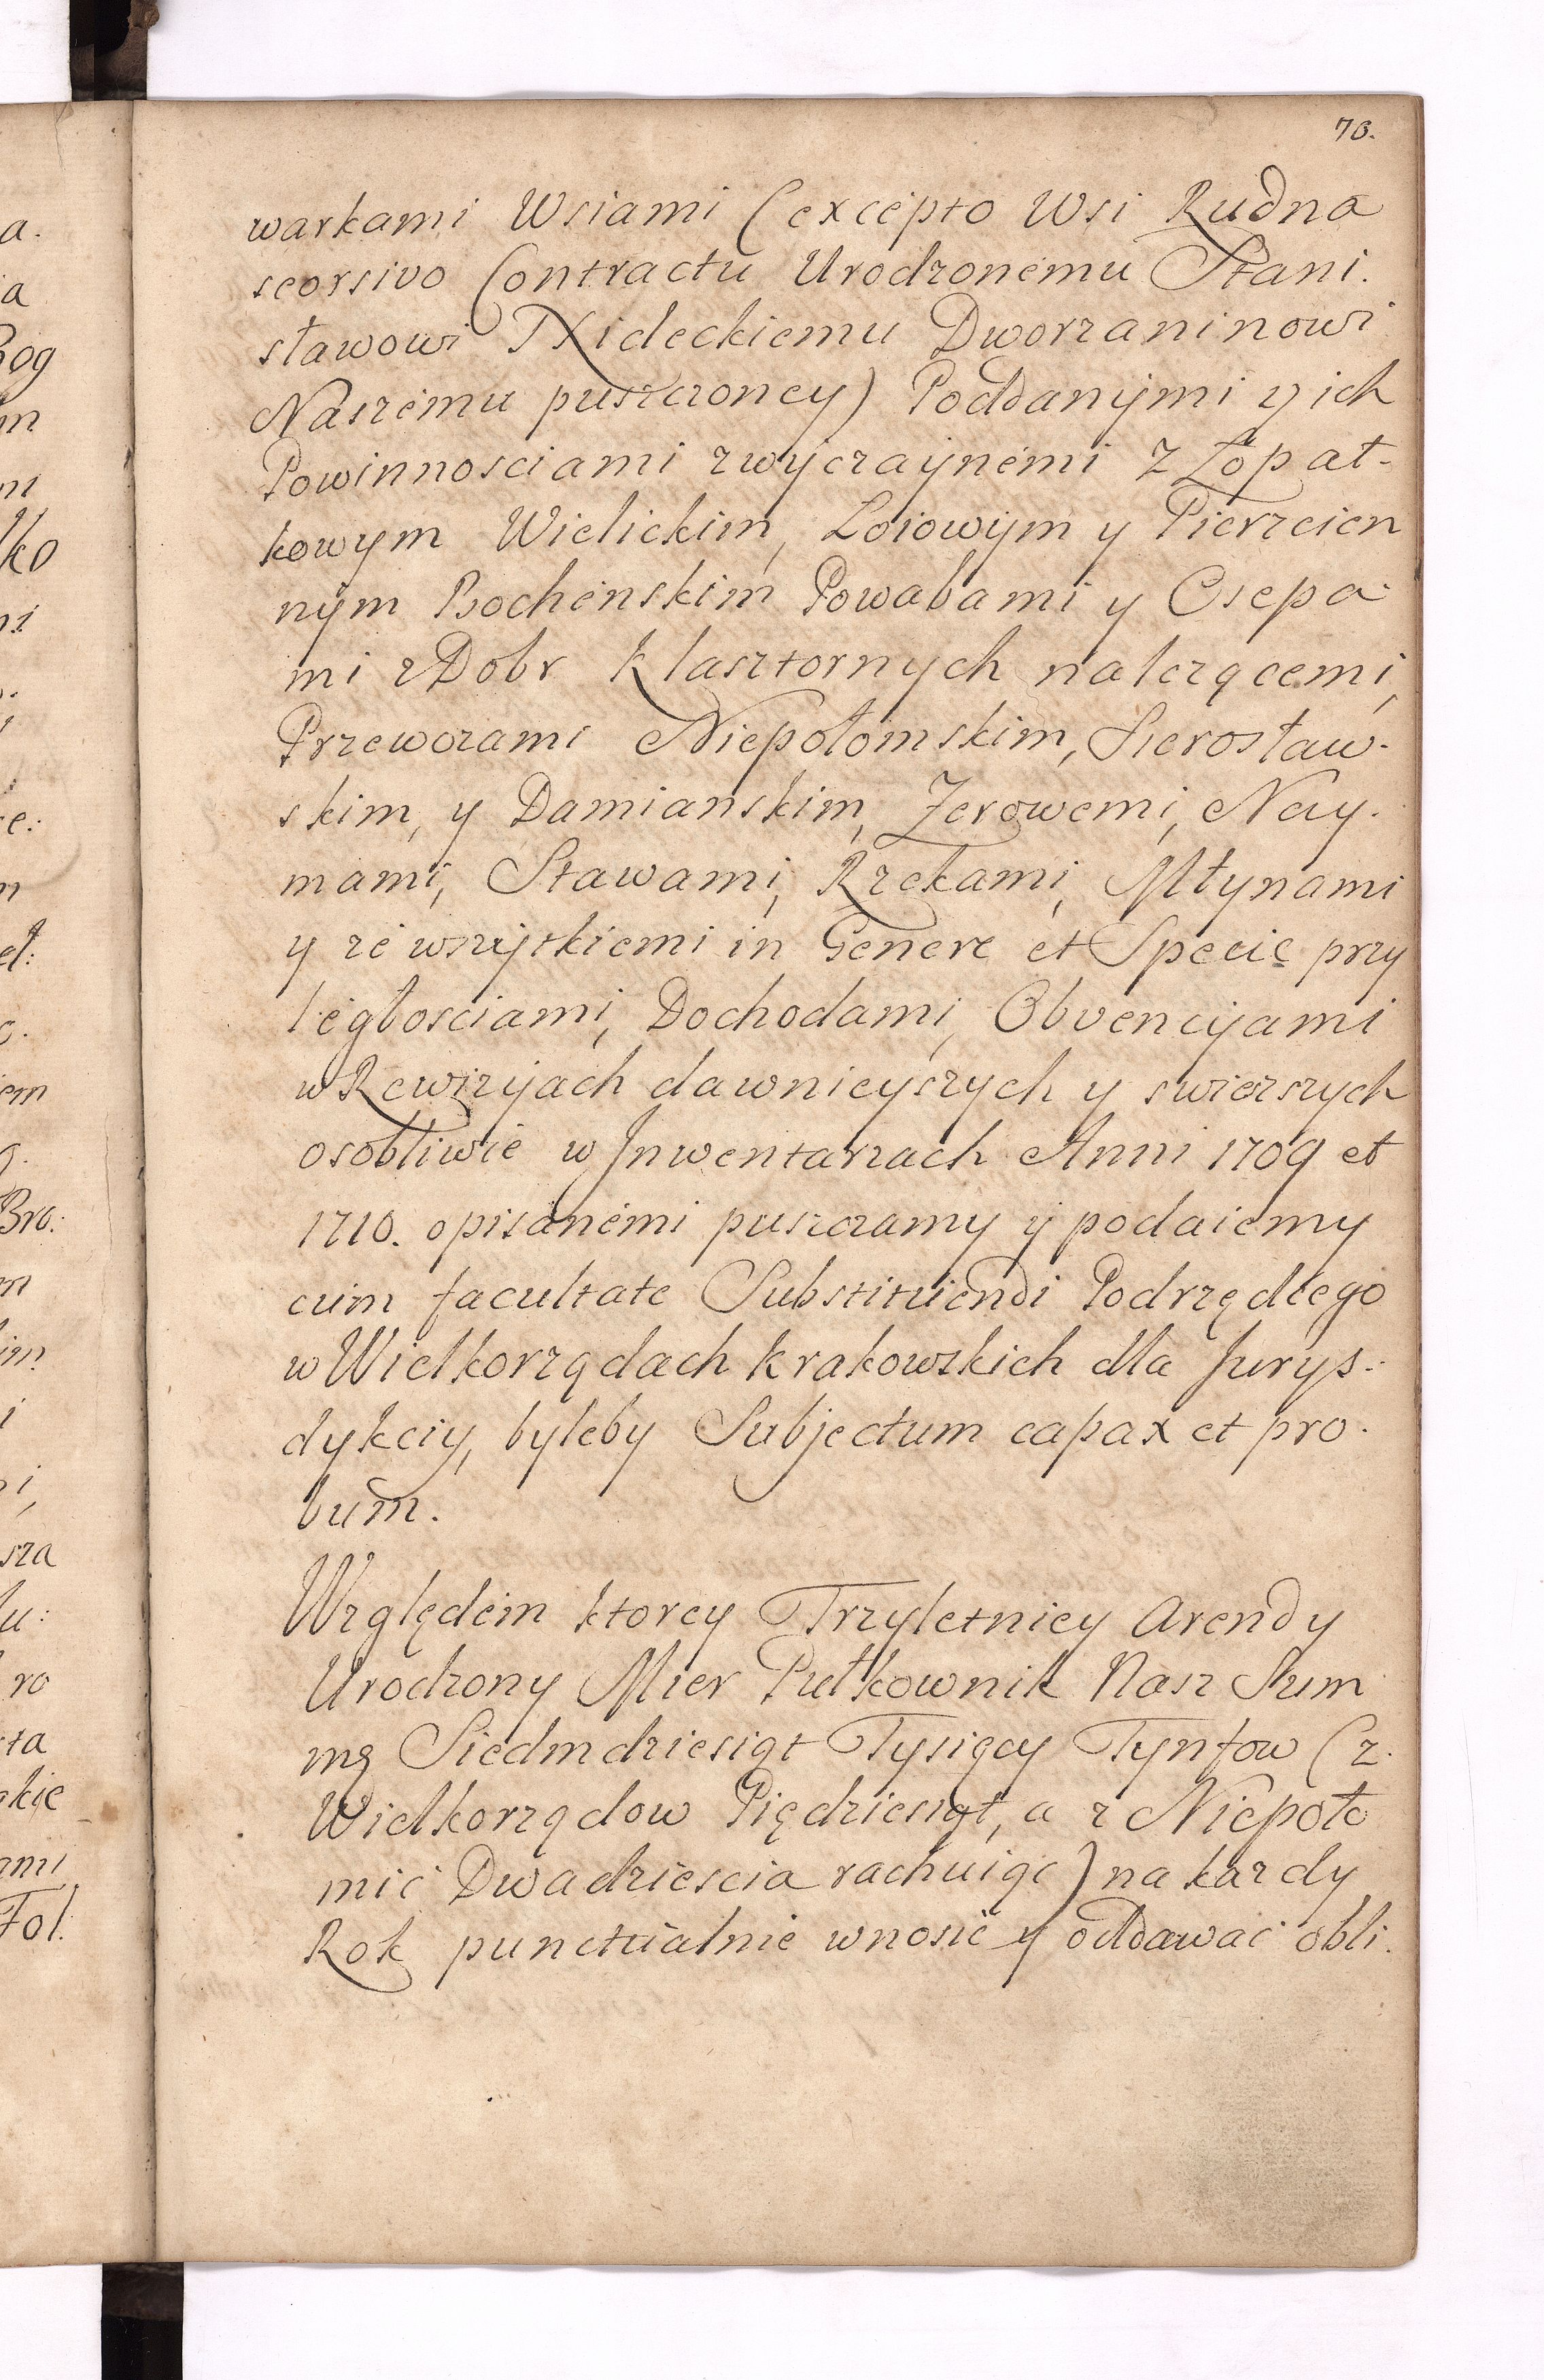 70.
warkami Wsiami (excepto Wsi Rudna
seorsivo Contractu Urodzonemu Stani.
sławowi Nideckiemu Dworzaninowi
Naszemu puszczoney) Poddanymi y ich
Powinnosciami zwyczaynemi z Łopat-
kowym Wielickim, Łoiowym y Pierzcien
nym Bochenskim Powabami y Osepa
mi z Dobr Klasztornych nalezącemi,
Przewozami Niepołomskim, Sierosław-
skim, y Damianskim, Zerowemi, Nay-
mami, Stawami, Rzekami, Młynami
y ze wszystkiemi in Genere et Specie przy
ległosciami, Dochodami, Obvencyjami
w Rewizyjach dawnieyszych y swierszych
osobliwie w Jnwentarzach Anni 1709 et
1710. opisanemi puszczamy y podaiemy
cum facultate Substituendi Podrzędlego
w Wielkorządach Krakowskich dla Jurys-
dykciy, byleby Subjectum capax et pro-
bum.
Względem ktorey Trzyletniey Arendy
Urodzony Mier Pułkownik Nasz Sum
mę Siedmdziesiąt Tysięcy Tynfow (z
Wielkorządow Pięćdziesiąt, a z Niepoło
mic Dwadziescia rachuiąc) na kazdy
Rok punctualnie wnosić y oddawac obli-
a.
a
Bog
m
ko
ni
re:
m
et:
iem
Bro:
m
im.
i
sza
lu:
ro
ta
skie
ami
Fol.